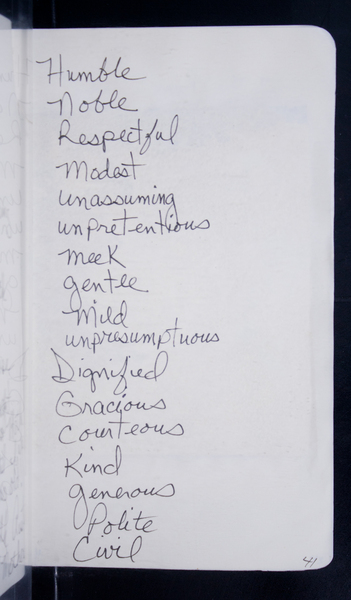 Humble
Noble
Respectful
Modest
unassuming
unpretentious
meek
gentle
Mild
unpresumptuous
Dignified
Gracious
Courteous
Kind
generous
Polite
Civil
41